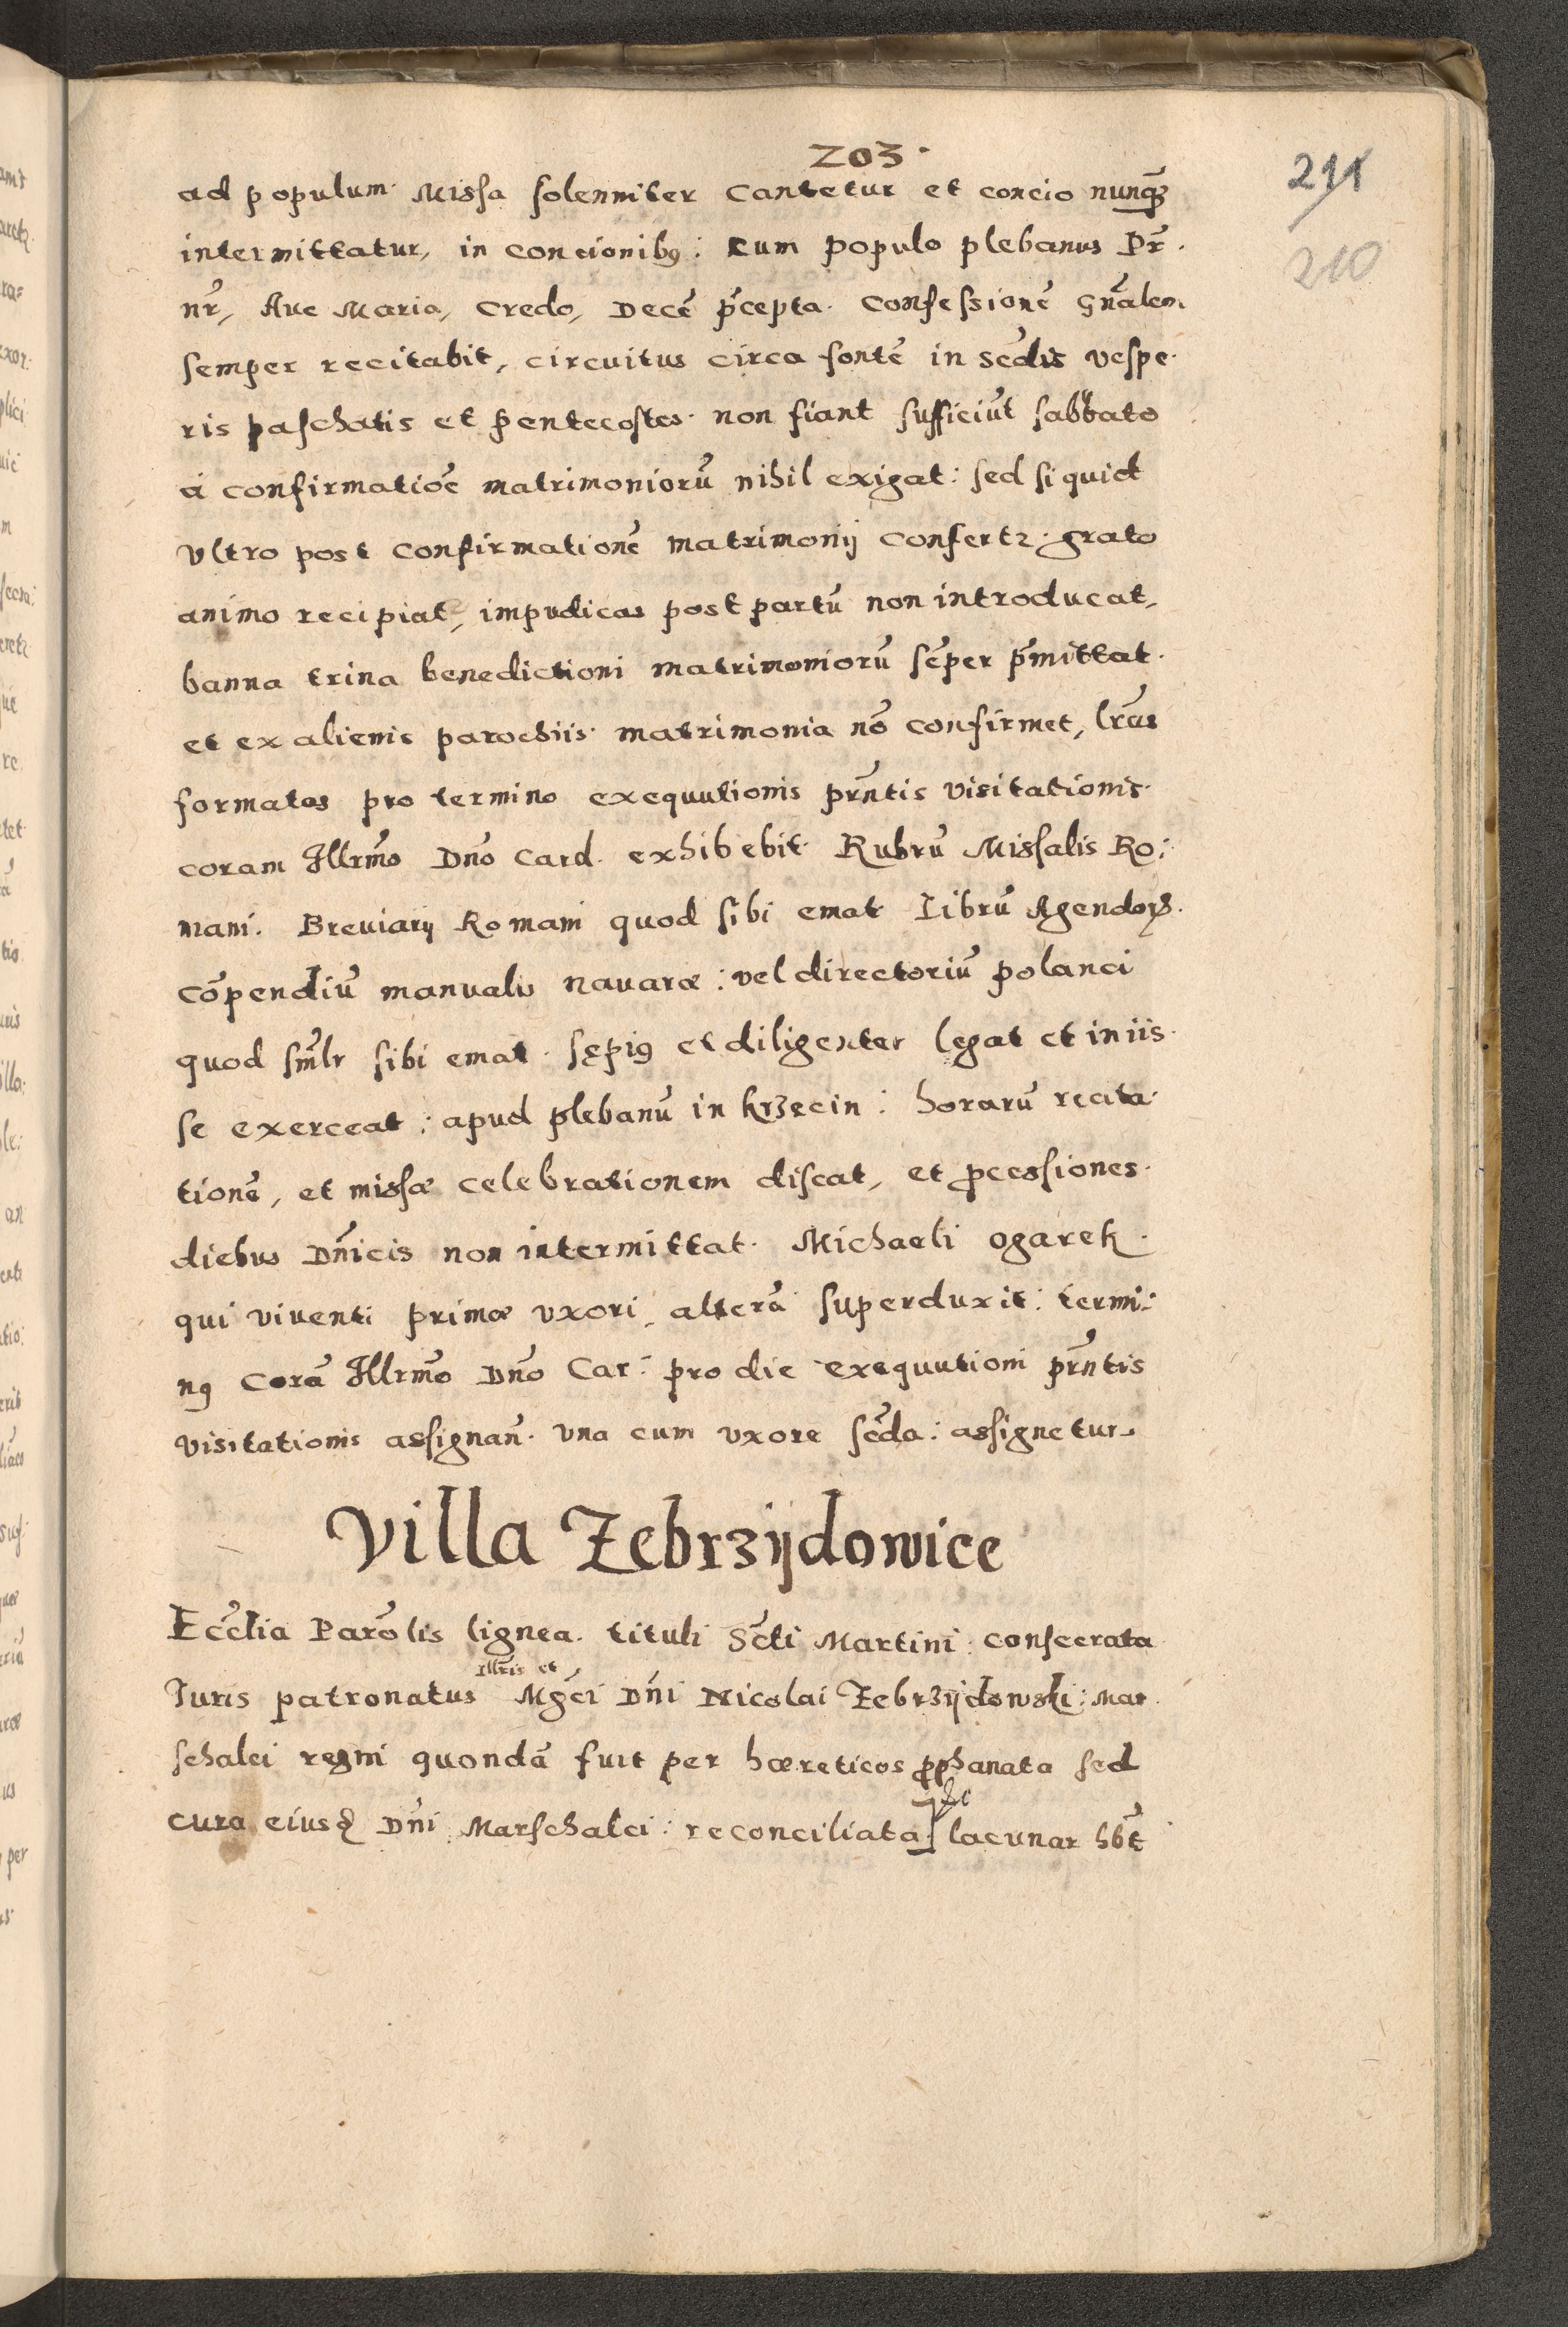 203.
211
210
ad populum. Missa solenniter Cantetur et concio nunq̃
intermittatur, in concionibꝰ: Cum populo plebanus Pr̃.
nr̃, Aue Maria, Credo, Decẽ p̃cepta. Confessionẽ gñalem
semper recitabit, circuitus circa fontẽ in Sec̃dis vespe.
ris paschatis et pentecostes. non fiant sufficiũt sabbato
á confirmatiõe matrimoniorũ nihil exigat: sed si quid
vltro post confirmationẽ matrimonij confertr. grato
animo recipiat, impudicas post partũ non introducat,
banna trina benedictioni matrimoniorũ sẽper p̃mittat.
et ex alienis parochiis. matrimonia nõ confirmet, lr̃as
formatas pro termino exequutionis pñtis visitationis.
coram Illrmõ Dnõ Card. exhibebit. Rubrũ Missalis Ro:
mani. Breviarij Romani quod sibi emat librũ Agendoꝝ.
cõpendiũ manualis nauaræ: vel directoriũ polanci
quod sm̃lr sibi emat. sępiꝰ et diligenter legat et in iis.
se exerceat: apud plebanũ in krzecin: horarũ recita.
tionẽ, et missæ celebrationem discat, et ꝓcessiones.
diebus Dñicis non intermittat. Michaeli ogarek.
qui viventi primæ vxori, alterã superduxit: termi:
nꝰ Corã Illrmõ Dnõ Car: pro die exequutioni pr̃ntis
visitationis assignañ. vna cum vxore sec̃da: assignetur.
Villa Zebrzijdowice
Ecc̃lia Parõlis lignea. tituli Sc̃ti Martini: consecrata
Illris et
Iuris patronatus Mg̃ci Dñi Nicolai Zebrzijdowski: Mar.
schalci regni quondã fuit per hæreticos ꝓphanata sed
cura eiusꝗ Dñi Marschalci: reconciliata. lacunar hb̃t